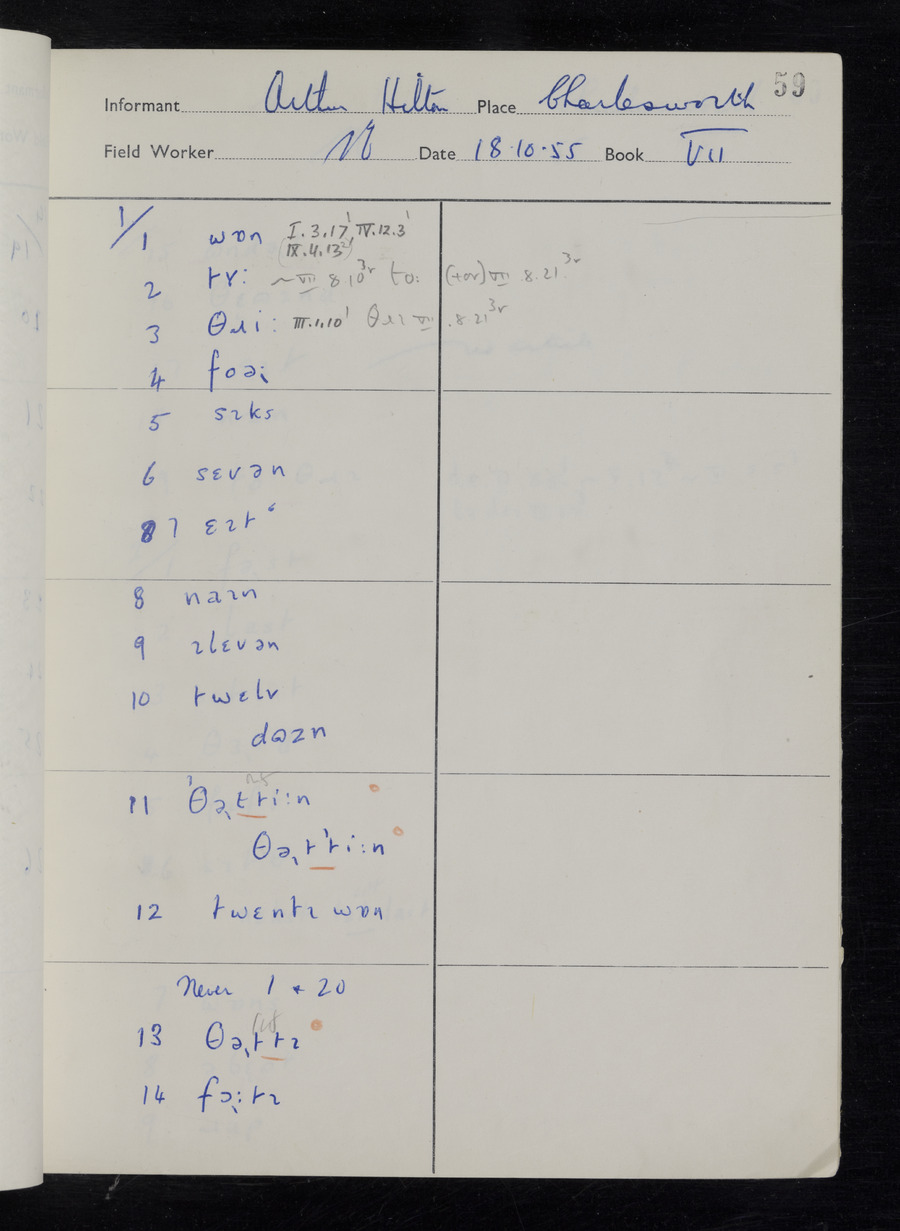 59
Informant Arthur Hilton Place Charlesworth
Field Worker Date 18·10·55 Book VII
1/1 wɒn I.3.17¹ IV.12.3¹
(IX.4.13²)
2 tʏ: ~VII 8.10³ʳ to: (tov) VII.8.21³ʳ
3 θɹi: III.1.10¹ θɹɪ VII.8.21³ʳ
4 foə̨
5 sɪks
6 sɛvən
7 ɛɪt‘
8 naɪn
9 ɪlɛvən
10 twelv
dɷzn
11 'θə̨ttri:n
θə̨t'ti:n
12 twɛntɪ wɒn
Never 1 & 20
13 θə̨ttɪ
14 fɔ̨:tɪ